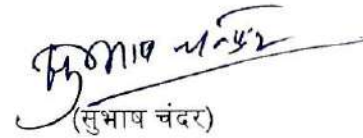 सुभाष चन्दर
(सुभाष चंदर)